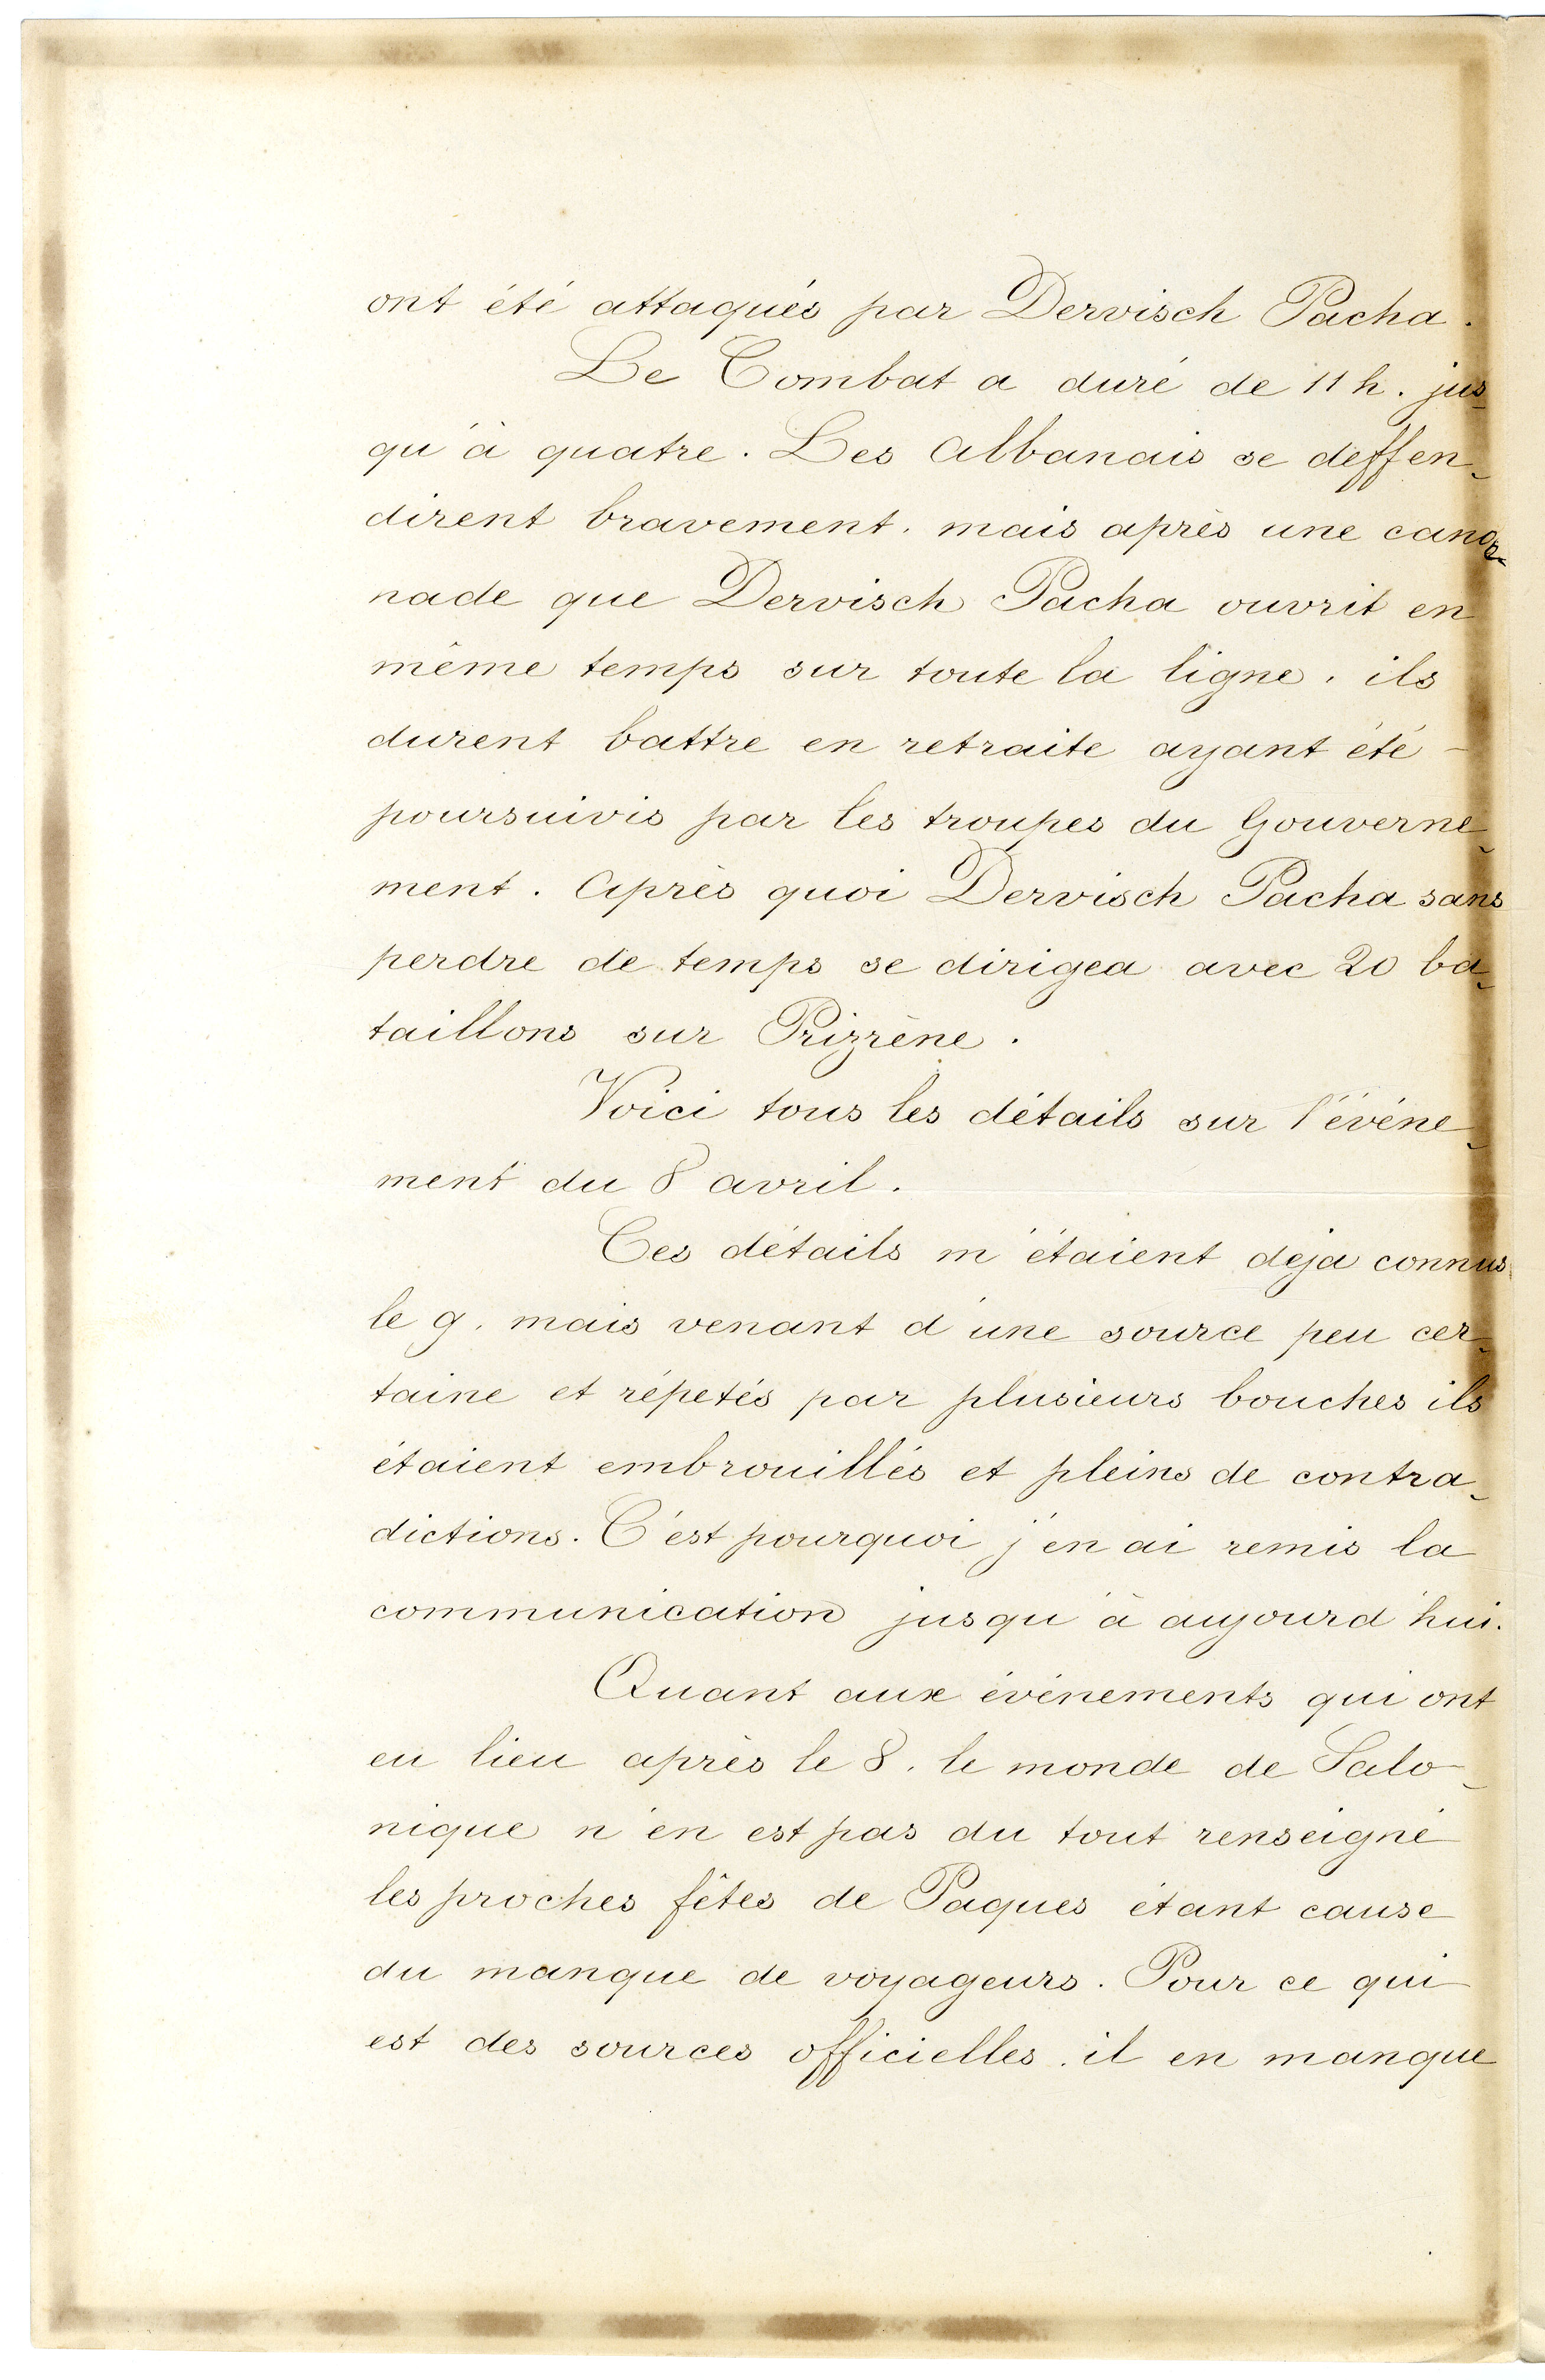 ont été attaqués par Dervisch Pacha.
Le Combat a duré de 11 h. jus-
qu'à quatre. Les Albanais se deffen-
dirent bravement, mais après une canon-
nade que Dervisch Pacha ouvrit en
même temps sur toute la ligne, ils
durent battre en retraite ayant été –
poursuivis par les troupes du Gouverne-
ment. Après quoi Dervisch Pacha sans
perdre de temps se dirigea avec 20 ba-
taillons sur Prizrène.
Voici tous les détails sur l'événe-
ment du 8 avril.
Ces détails m'étaient déja connus
le 9, mais venant d'une source peu cer-
taine et répetés par plusieurs bouches ils
étaient embrouillés et pleins de contra-
dictions. C'est pourquoi j'en ai remis la
communication jusqu'à aujourd'hui.
Quant aux événements qui ont
eu lieu après le 8, le monde de Salo-
nique n'en est pas du tout renseigné
les proches fêtes de Paques étant cause
du manque de voyageurs. Pour ce qui
est des sources officielles, il en manque